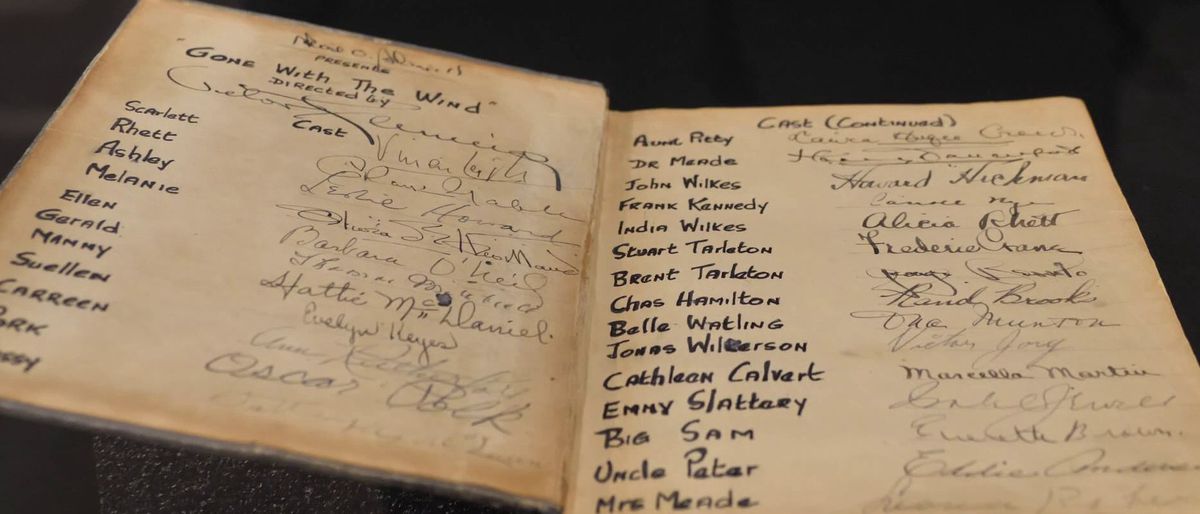 PRESENTS
"GONE WITH THE WIND"
DIRECTED BY
Victor Fleming
CAST
SCARLETT
RHETT
ASHLEY Leslie Howard
MELANIE Olivia de Havilland
ELLEN Barbara O'Neil
GERALD Thomas Mitchell
MAMMY Hattie McDaniel
SUELLEN Evelyn Keyes
CARREEN
ORK Oscar Polk
SSY
CAST (CONTINUED)
AUNT PITTY Laura Hope Crews
DR MEADE Harry Davenport
JOHN WILKES Howard Hickman
FRANK KENNEDY
INDIA WILKES Alicia Rhett
STUART TARLETON Frederic Crane
BRENT TARLETON
CHAS HAMILTON Rand Brooks
BELLE WATLING Ona Munson
JONAS WILKERSON Victor Jory
CATHLEEN CALVERT Marcella Martin
EMMY SLATTERY Isabel Jewell
BIG SAM Everett Brown
UNCLE PETER Eddie Anderson
MRS MEADE